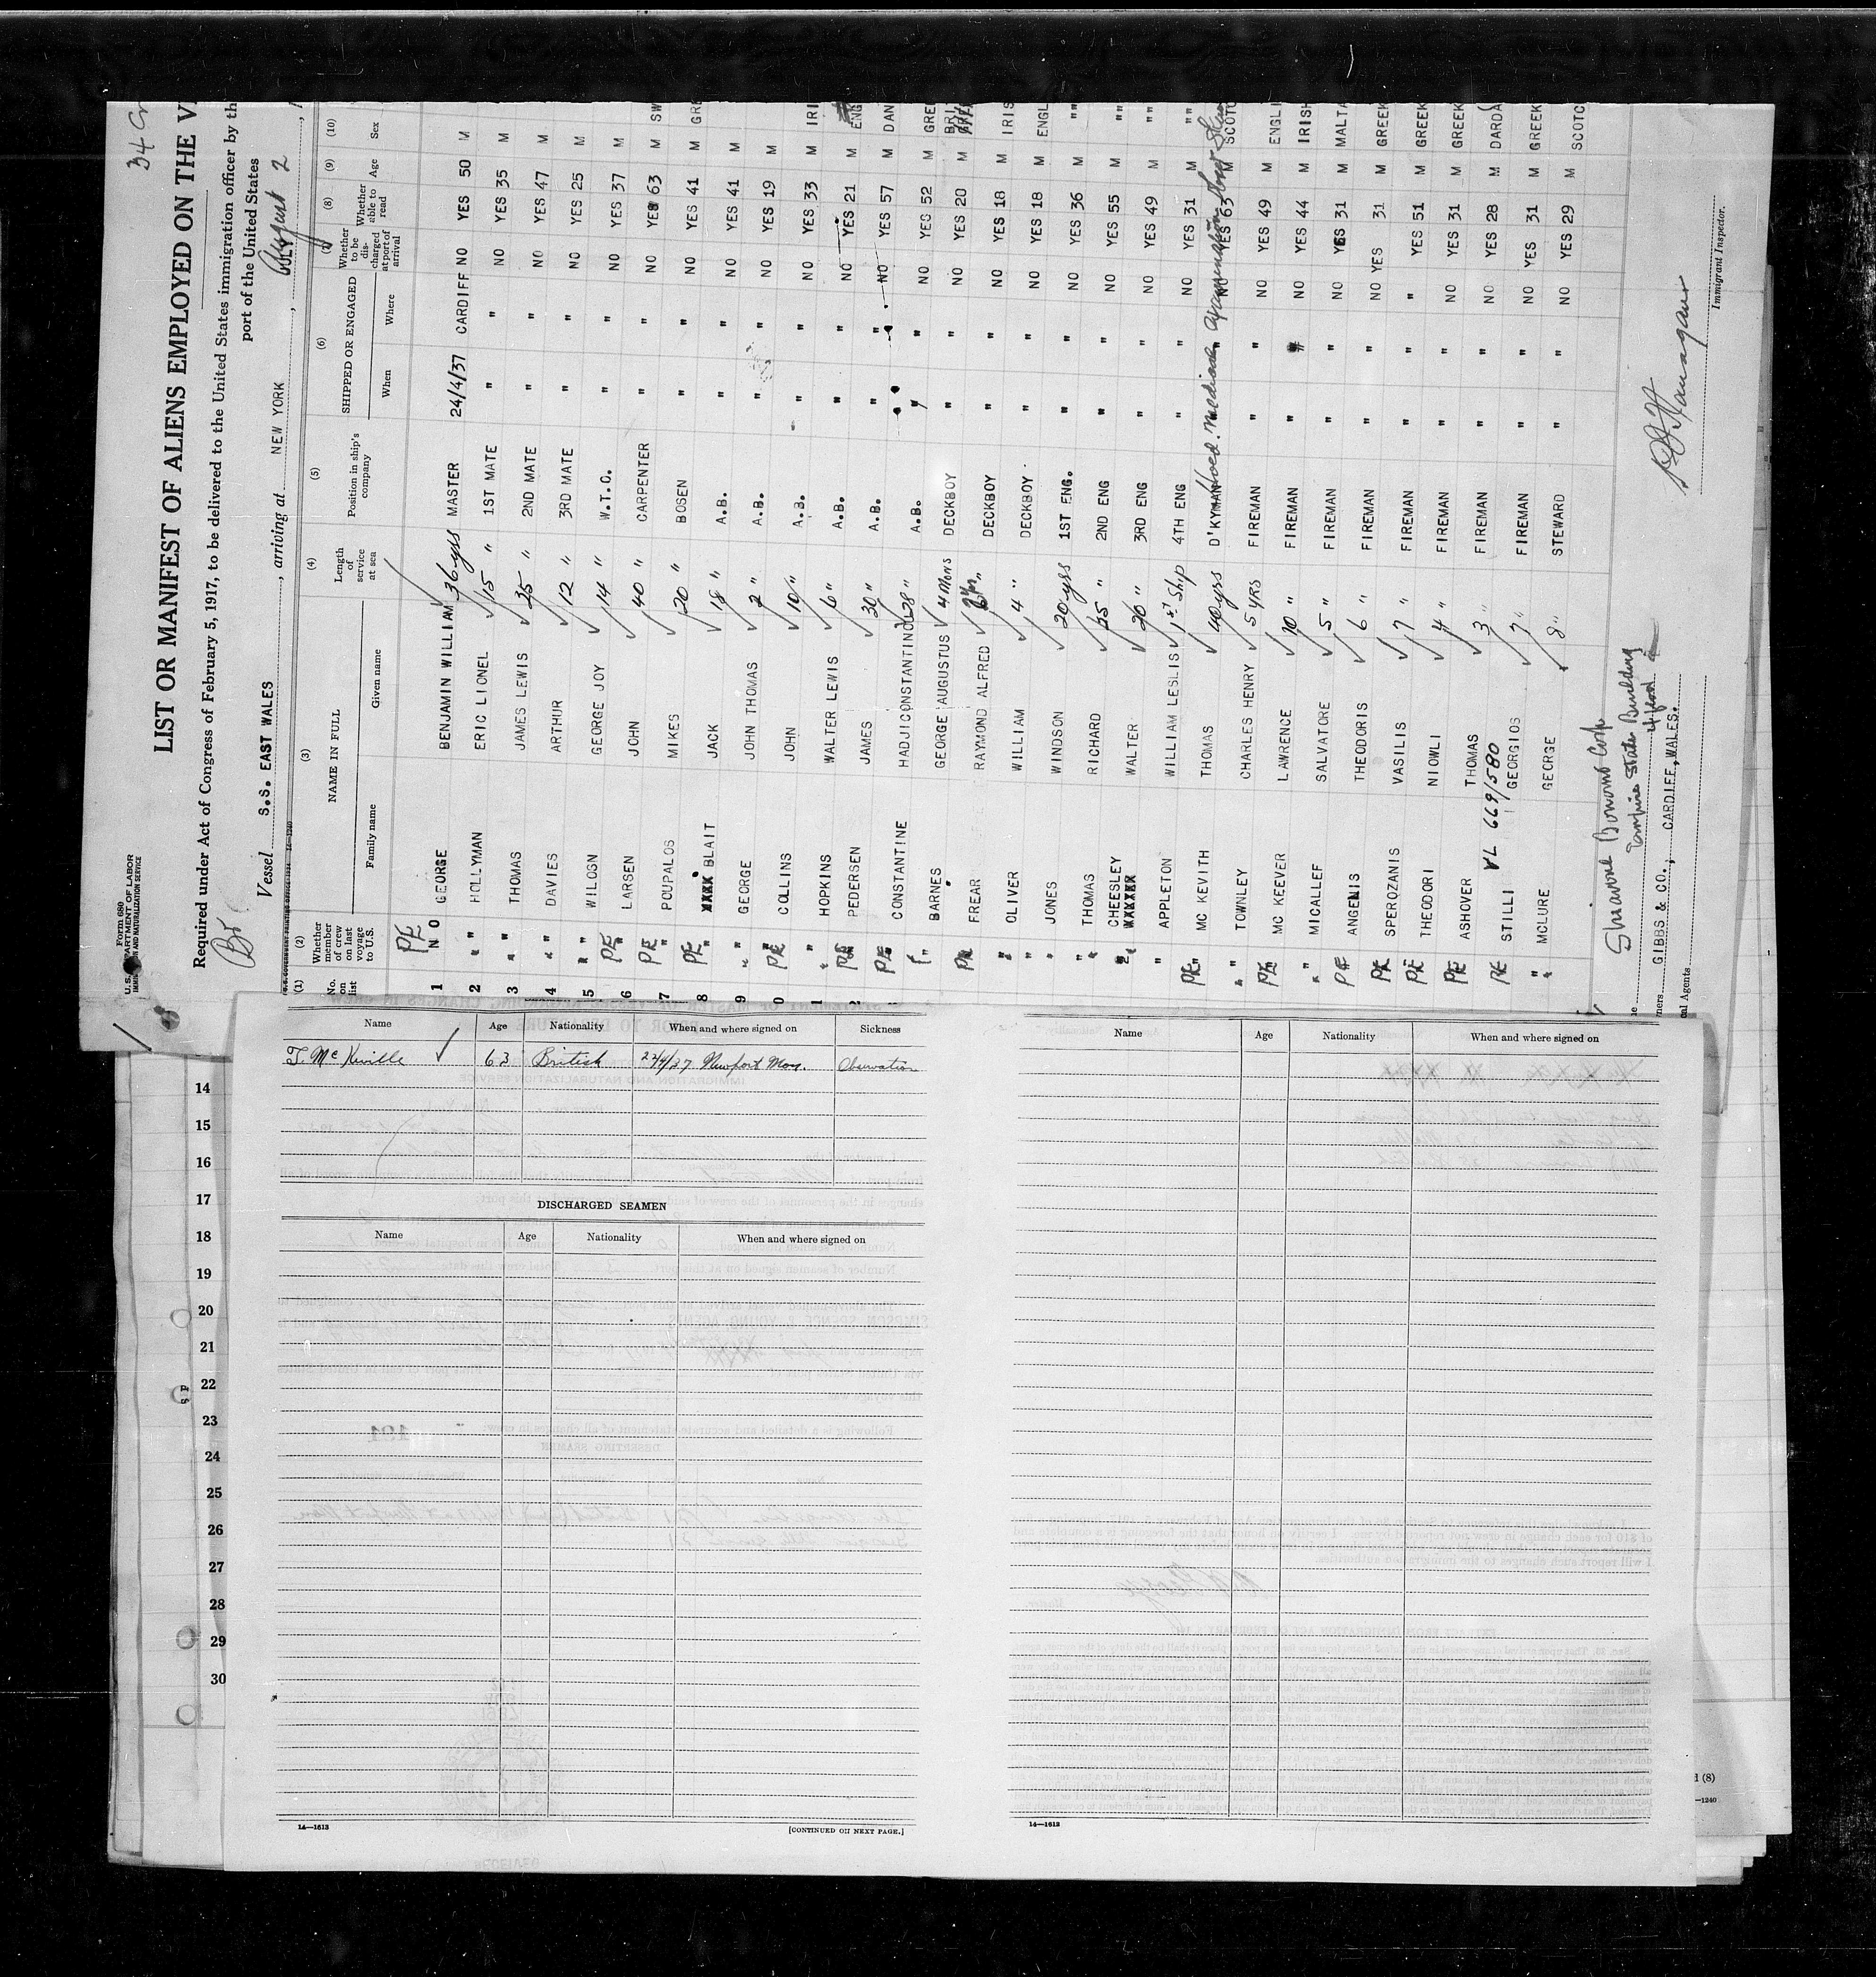 34
LIST OR MANIFEST OF ALIENS EMPLOYED ON THE
Form 680
U. S. DEPARTMENT OF LABOR
IMMIGRATION AND NATURALIZATION SERVICE
Required under Act of Congress of February 5, 1917, to be delivered to the United States immigration officer by th
port of the United States
Vessel S.S. EAST WALES, arriving at NEW YORK, August 2
(1) (2) (3) (4) (5) (6) (7) (8) (9) (10)
No. on list
Whether member of crew on last voyage to U.S.
NAME IN FULL
Family name Given name
Length of service at sea
Position in ship's company
SHIPPED OR ENGAGED
When Where
Whether to be discharged at port of arrival
Whether able to read
Age
Sex
1 PE NO GEORGE BENJAMIN WILLIAM 36yrs MASTER 24/4/37 CARDIFF NO YES 50 M
2 " HOLLYMAN ERIC LIONEL 15 " 1ST MATE " " NO YES 35 M
3 " THOMAS JAMES LEWIS 35 " 2ND MATE " " NO YES 47 M
4 " DAVIES ARTHUR 12 " 3RD MATE " " NO YES 25 M
5 " WILOSN GEORGE JOY 14 " W.T.O. " " NO YES 37 M
6 PE " LARSEN JOHN 40 " CARPENTER " " NO YES 63 M SW
7 PE " POUPALOS MIKES 20 " BOSEN " " NO YES 41 M GRE
8 PE " BLAIT JACK 18 " A.B. " " NO YES 41 M
9 " GEORGE JOHN THOMAS 2 " A.B. " " NO YES 19 M
0 PE " COLLINS JOHN 10 " A.B. " " NO YES 33 M IRI
1 " HOPKINS WALTER LEWIS 6 " A.B. " " NO YES 21 M ENG
2 PE PEDERSEN JAMES 30 " A.B. " " NO YES 57 M DAN
PE CONSTANTINE HADJICONSTANTINOU 28 " A.B. " " NO YES 52 M GRE
" BARNES GEORGE AUGUSTUS 4 Mons DECKBOY " " NO YES 20 M
PE FREAR RAYMOND ALFRED " DECKBOY " " NO YES 18 M IRIS
" OLIVER WILLIAM 4 " DECKBOY " " NO YES 18 M ENGL
" JONES WINDSON 20yrs 1ST ENG. " " NO YES 36 M "
" THOMAS RICHARD 35 " 2ND ENG " " NO YES 55 M "
" CHEESLEY WALTER 30 " 3RD ENG " " NO YES 49 M "
" APPLETON WILLIAM LESLIS 1st Ship 4TH ENG " " NO YES 31 M "
PE " MC KEVITH THOMAS 40yrs D'KYMAN " " NO YES 63 M SCOTC
" TOWNLEY CHARLES HENRY 5 YRS FIREMAN " " NO YES 49 M ENGLI
PE MC KEEVER LAWRENCE 10 " FIREMAN " " NO YES 44 M IRISH
" MICALLEF SALVATORE 5 " FIREMAN " " NO YES 31 M MALTA
PE ANGENIS THEODORIS 6 " FIREMAN " " NO YES 31 M GREEK
PE SPEROZANIS VASILIS 7 " FIREMAN " " " YES 51 M GREEK
PE THEODORI NIOWLI 4 " FIREMAN " " NO YES 31 M GREEK
PE ASHOVER THOMAS 3 " FIREMAN " " NO YES 28 M DARDA
PE STILLI VL 669/580 GEORGIOS 7 " FIREMAN " " NO YES 31 M GREEK
" MCLURE GEORGE 8 " STEWARD " " NO YES 29 M SCOTC
Empire State Building
GIBBS & CO., CARDIFF, WALES.
cal Agents
Immigrant Inspector.
Name Age Nationality When and where signed on Sickness
T. McKeville 63 British 22/4/37 Newport Mon. Observation
DISCHARGED SEAMEN
Name Age Nationality When and where signed on
14—1613
[CONTINUED ON NEXT PAGE.]
Name Age Nationality When and where signed on
14—1613
14
15
16
17
18
19
20
21
22
23
24
25
26
27
28
29
30
(8)
—1240